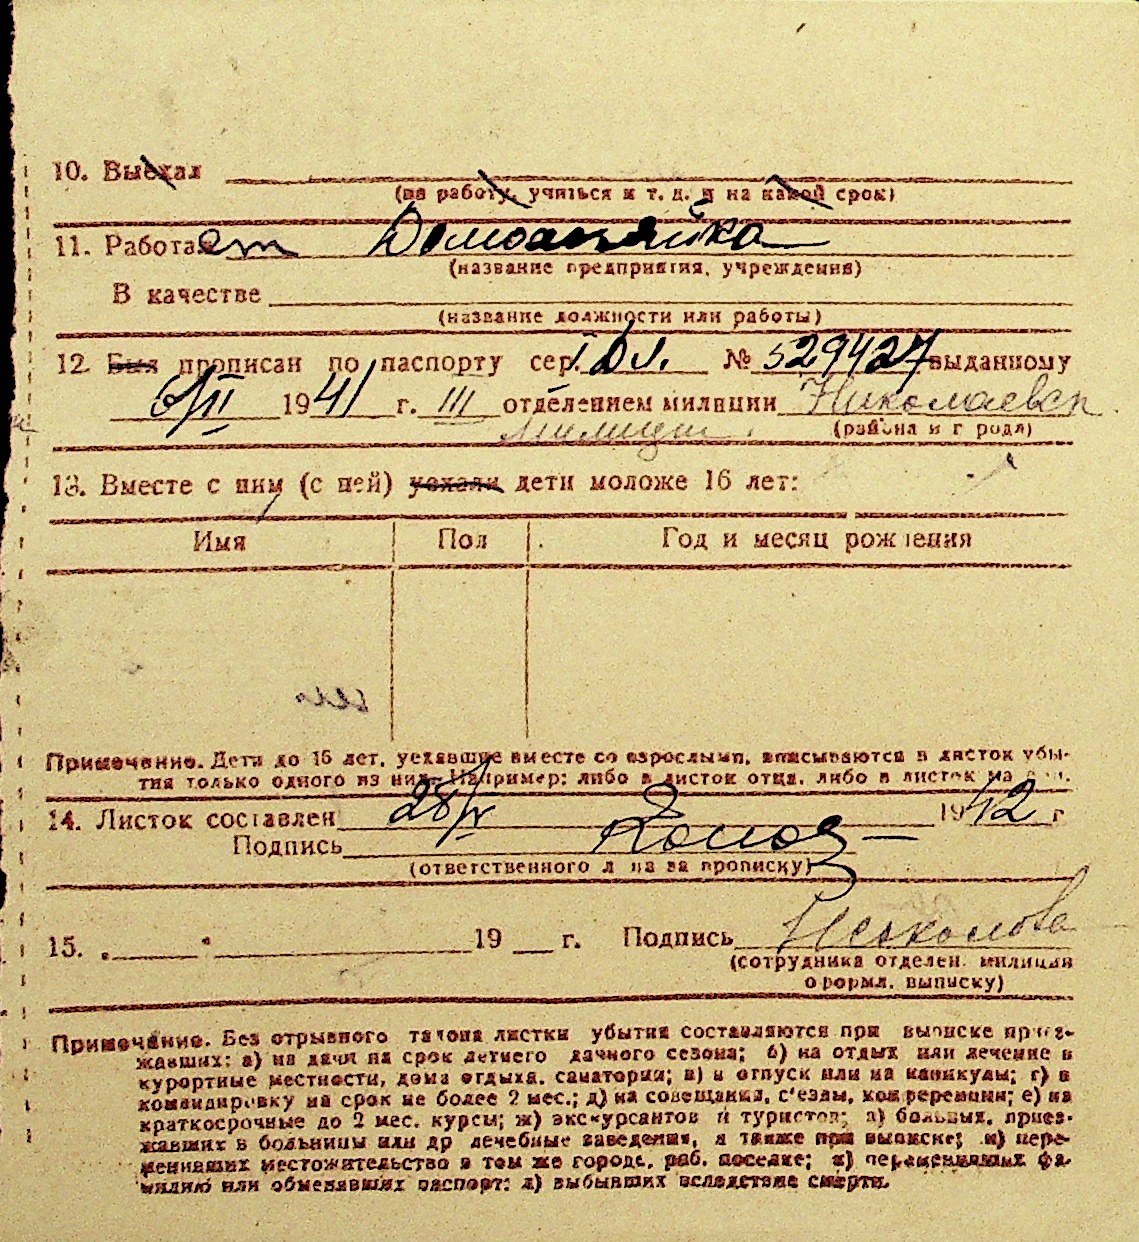 10. Выехал
(на работу, учиться и т. д. и на какой срок)
11. Работает Домохозяйка
(название предприятия, учреждения)
В качестве
(название должности или работы)
12. Был прописан по паспорту сер. № 529427 выданному
1941 г. III отделением милиции Николаевск
милиции (района и города)
13. Вместе с ним (с ней) уехали дети моложе 16 лет:
Имя Пол Год и месяц рождения
Примечание. Дети до 16 лет, уехавшие вместе со взрослыми, вписываются в листок убы-
тия только одного из них. Например: либо в листок отца, либо в листок ма
14. Листок составлен 28/V 1942 г
Подпись
(ответственного лица за прописку)
15. 19 г. Подпись
(сотрудника отделен. милиции
оформл. выписку)
Примечание. Без отрывного талона листки убытия составляются при выписке приез-
жавших: а) на дачи на срок летнего дачного сезона; б) на отдых или лечение в
курортные местности, дома отдыха, санатории; в) в отпуск или на каникулы; г) в
командировку на срок не более 2 мес.; д) на совещания, с'езды, конференции; е) на
краткосрочные до 2 мес. курсы; ж) экскурсантов и туристов; з) больных, приез-
жавших в больницы или др лечебные заведения, а также при выписке; и) пере-
менивших местожительство в том же городе, раб. поселке; к) переменивших фа-
милию или обменявших паспорт; л) выбывших вследствие смерти.